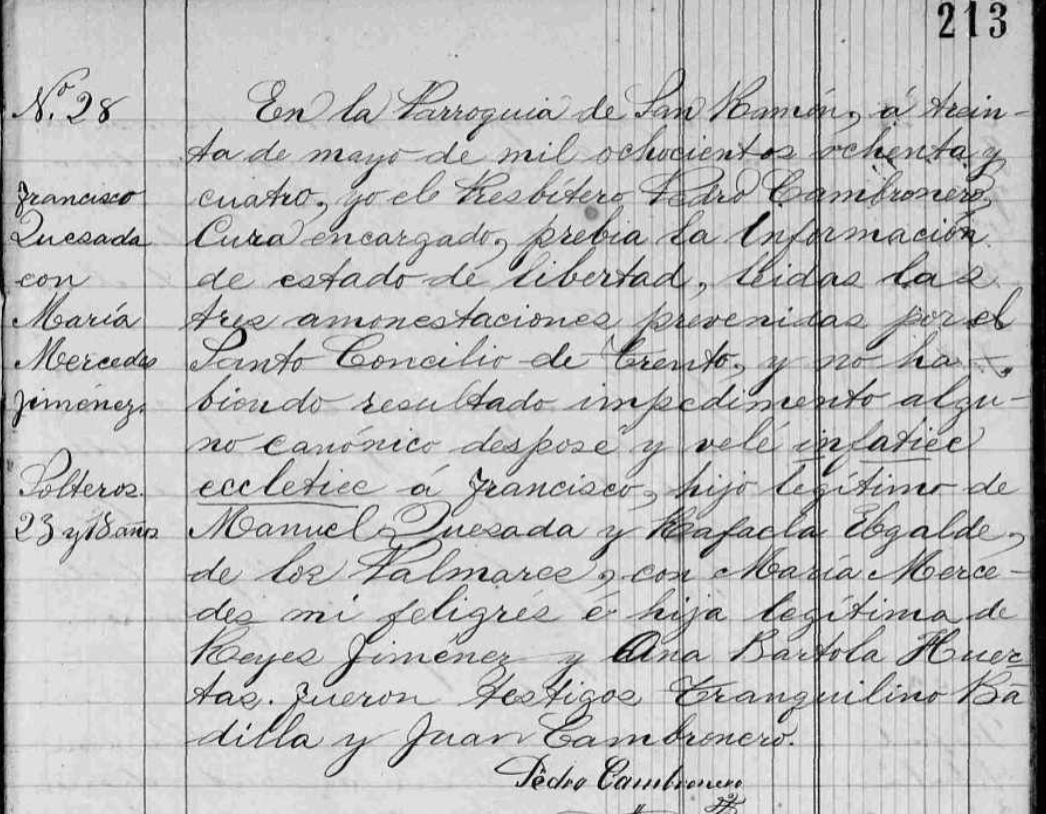 213
N.º 28
Francisco
Quesada
con
María
Mercedes
Jiménez.
Solteros.
23 y 18 años
En la Parroquia de San Ramón, á trein-
ta de mayo de mil ochocientos ochenta y
cuatro, yo el Presbítero Pedro Cambronero,
Cura encargado, prebia la Información
de estado de libertad, leidas las
tres amonestaciones prevenidas por el
Santo Concilio de Trento, y no ha-
biendo resultado impedimento algu-
no canónico desposé y velé infatiee
eccletiee á Francisco, hijo legítimo de
Manuel Quesada y Rafaela Ebgalde,
de los Palmares, con María Merce-
des mi feligrés é hija legítima de
Reyes Jiménez y Ana Bartola Huer-
tas. Fueron testigos Tranquilino Ba
dilla y Juan Cambronero.
Pedro Cambronero